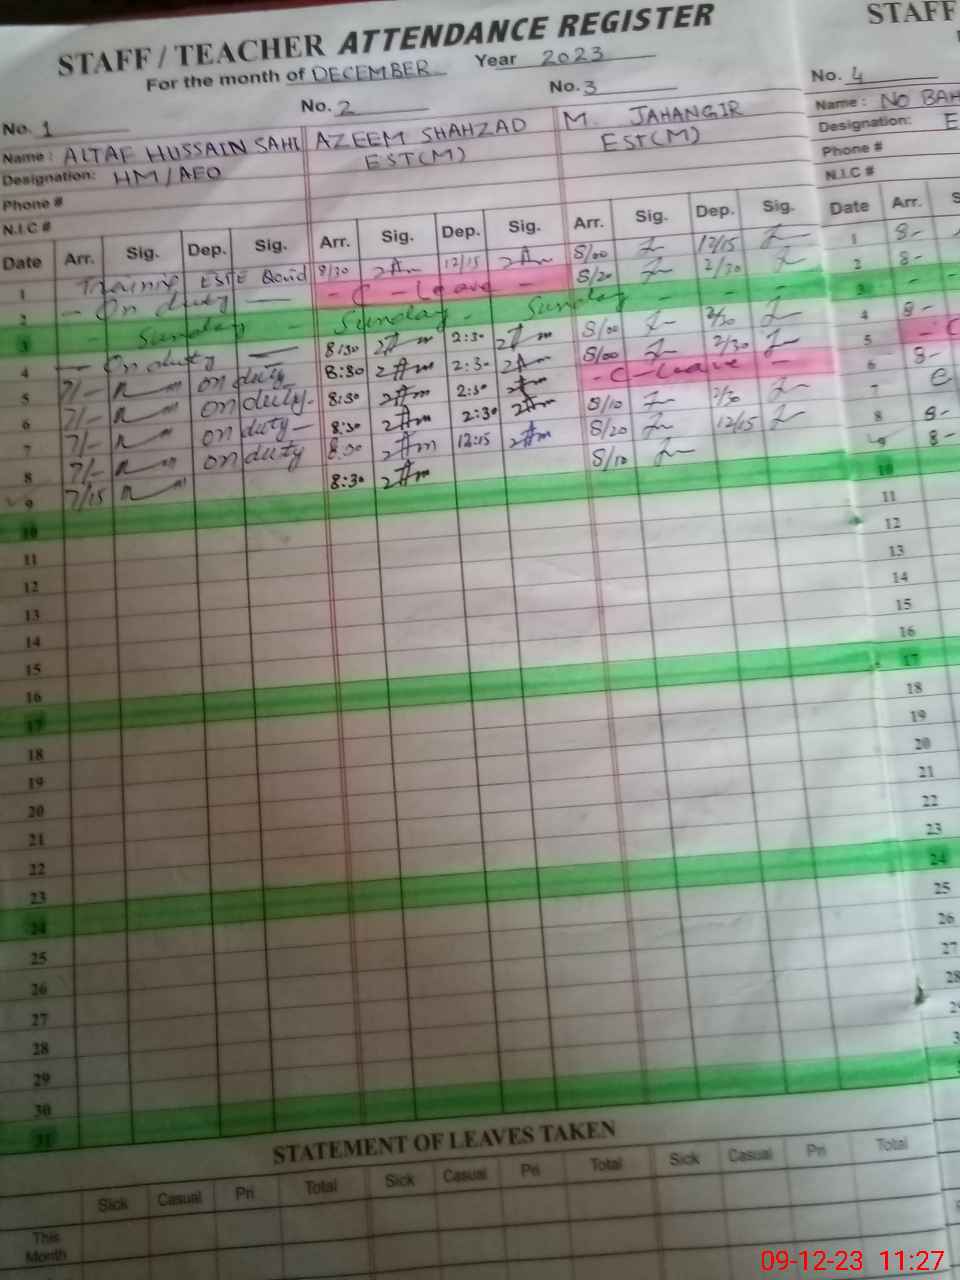 STAFF / TEACHER ATTENDANCE REGISTER STAFF
For the month of DECEMBER Year 2023
No. 1 No. 2 No. 3 No. 4
Name : ALTAF HUSSAIN SAHI AZEEM SHAHZAD M. JAHANGIR Name : NO BAH
Designation: HM/AEO EST(M) EST(M) Designation: E
Phone # Phone #
N.I.C # N.I.C #
Date Arr. Sig. Dep. Sig. Arr. Sig. Dep. Sig. Arr. Sig. Dep. Sig. Date Arr. S
1 Training 8/30 12/15 8/00 12/15 1 8-
2 - On duty - - C - Leave - 8/20 2/30 2 8-
3 - Sunday - Sunday - Sunday - - - 3 - -
4 - On duty - 8:30 2:30 8/00 2/30 4 8-
5 7/- on duty 8:30 2:30 8/00 2/30 5 - C
6 7/- on duty- 8:30 2:30 - C - Leave - 6 8-
7 7/- on duty- 8:30 2:30 8/10 2/30 7
8 7/- on duty 8:30 12:15 8/20 12/15 8 8-
9 7/15 8:30 8/10 9 8-
10 10
11 11
12 12
13 13
14 14
15 15
16 16
17 17
18 18
19 19
20 20
21 21
22 22
23 23
24 24
25 25
26 26
27 27
28 28
29
30
31
STATEMENT OF LEAVES TAKEN
Sick Casual Pri Total Sick Casual Pri Total Sick Casual Pri Total
This
Month
09-12-23 11:27